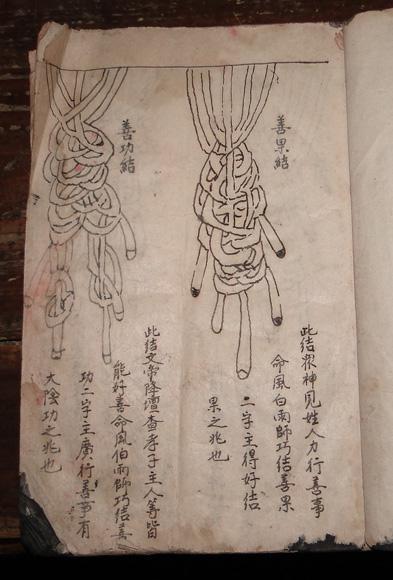 善果結
此結眾神見姓人力行善事
命風白雨師巧結善果
二字主得好結
果之兆也
善功結
此结文帝降壇查孝子主人等皆
能好善命風伯雨師巧结善
功二字主廣行善事有
大陰功之兆也